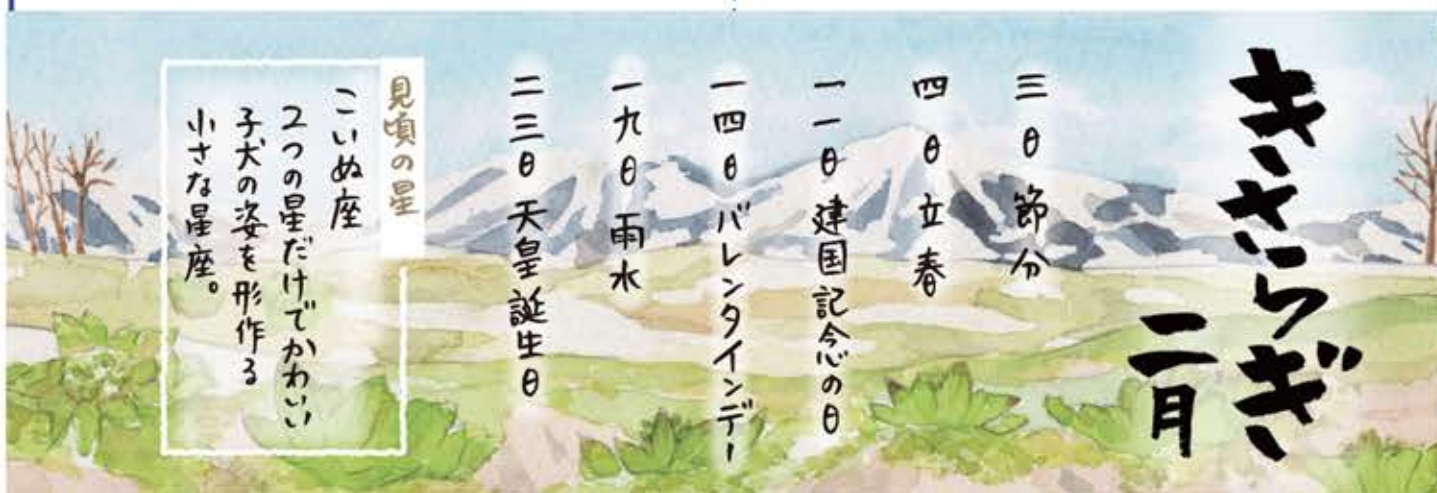 きさらぎ
二月
三日 節分
四日 立春
一一日 建国記念の日
一四日 バレンタインデー
一九日 雨水
二三日 天皇誕生日
見頃の星
こいぬ座
2つの星だけでかわいい
子犬の姿を形作る
小さな星座。